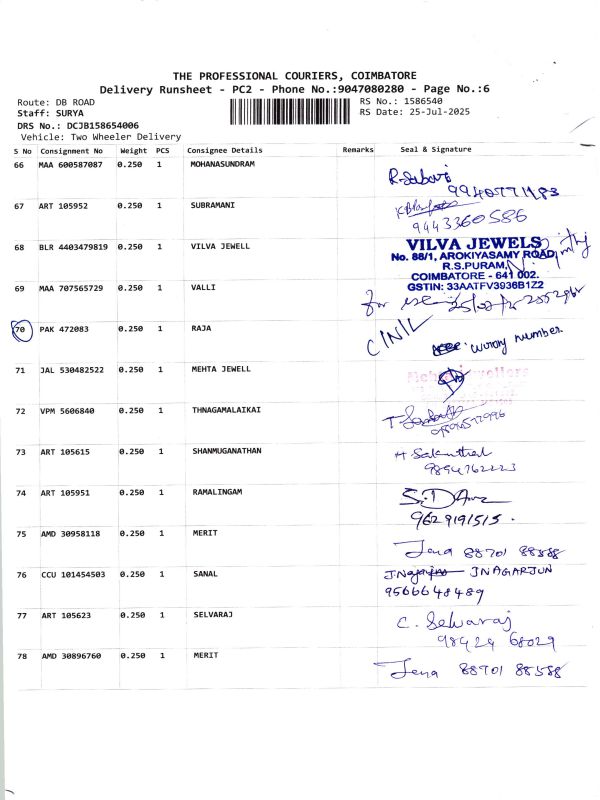 THE PROFESSIONAL COURIERS, COIMBATORE
Delivery Runsheet - PC2 - Phone No.:9047080280 - Page No.:6
Route: DB ROAD
RS No.: 1586540
Staff: SURYA
RS Date: 25-Jul-2025
DRS No.: DCJB158654006
Vehicle: Two Wheeler Delivery
S No Consignment No Weight PCS Consignee Details Remarks Seal & Signature
66 MAA 600587087 0.250 1 MOHANASUNDRAM
9940771183
67 ART 105952 0.250 1 SUBRAMANI
9443360586
68 BLR 4403479819 0.250 1 VILVA JEWELL
VILVA JEWELS
No. 88/1, AROKIYASAMY ROAD,
R.S.PURAM,
COIMBATORE - 641 002.
GSTIN: 33AATFV3936B1Z2
69 MAA 707565729 0.250 1 VALLI
70 PAK 472083 0.250 1 RAJA
wrong number.
71 JAL 530482522 0.250 1 MEHTA JEWELL
72 VPM 5606840 0.250 1 THNAGAMALAIKAI
73 ART 105615 0.250 1 SHANMUGANATHAN
9894762223
74 ART 105951 0.250 1 RAMALINGAM
9629191515.
75 AMD 30958118 0.250 1 MERIT
Jena 88701 88588
76 CCU 101454503 0.250 1 SANAL
JNAGARJUN
9566648489
77 ART 105623 0.250 1 SELVARAJ
C. Selvaraj
98424 68029
78 AMD 30896760 0.250 1 MERIT
Jena 88701 88588